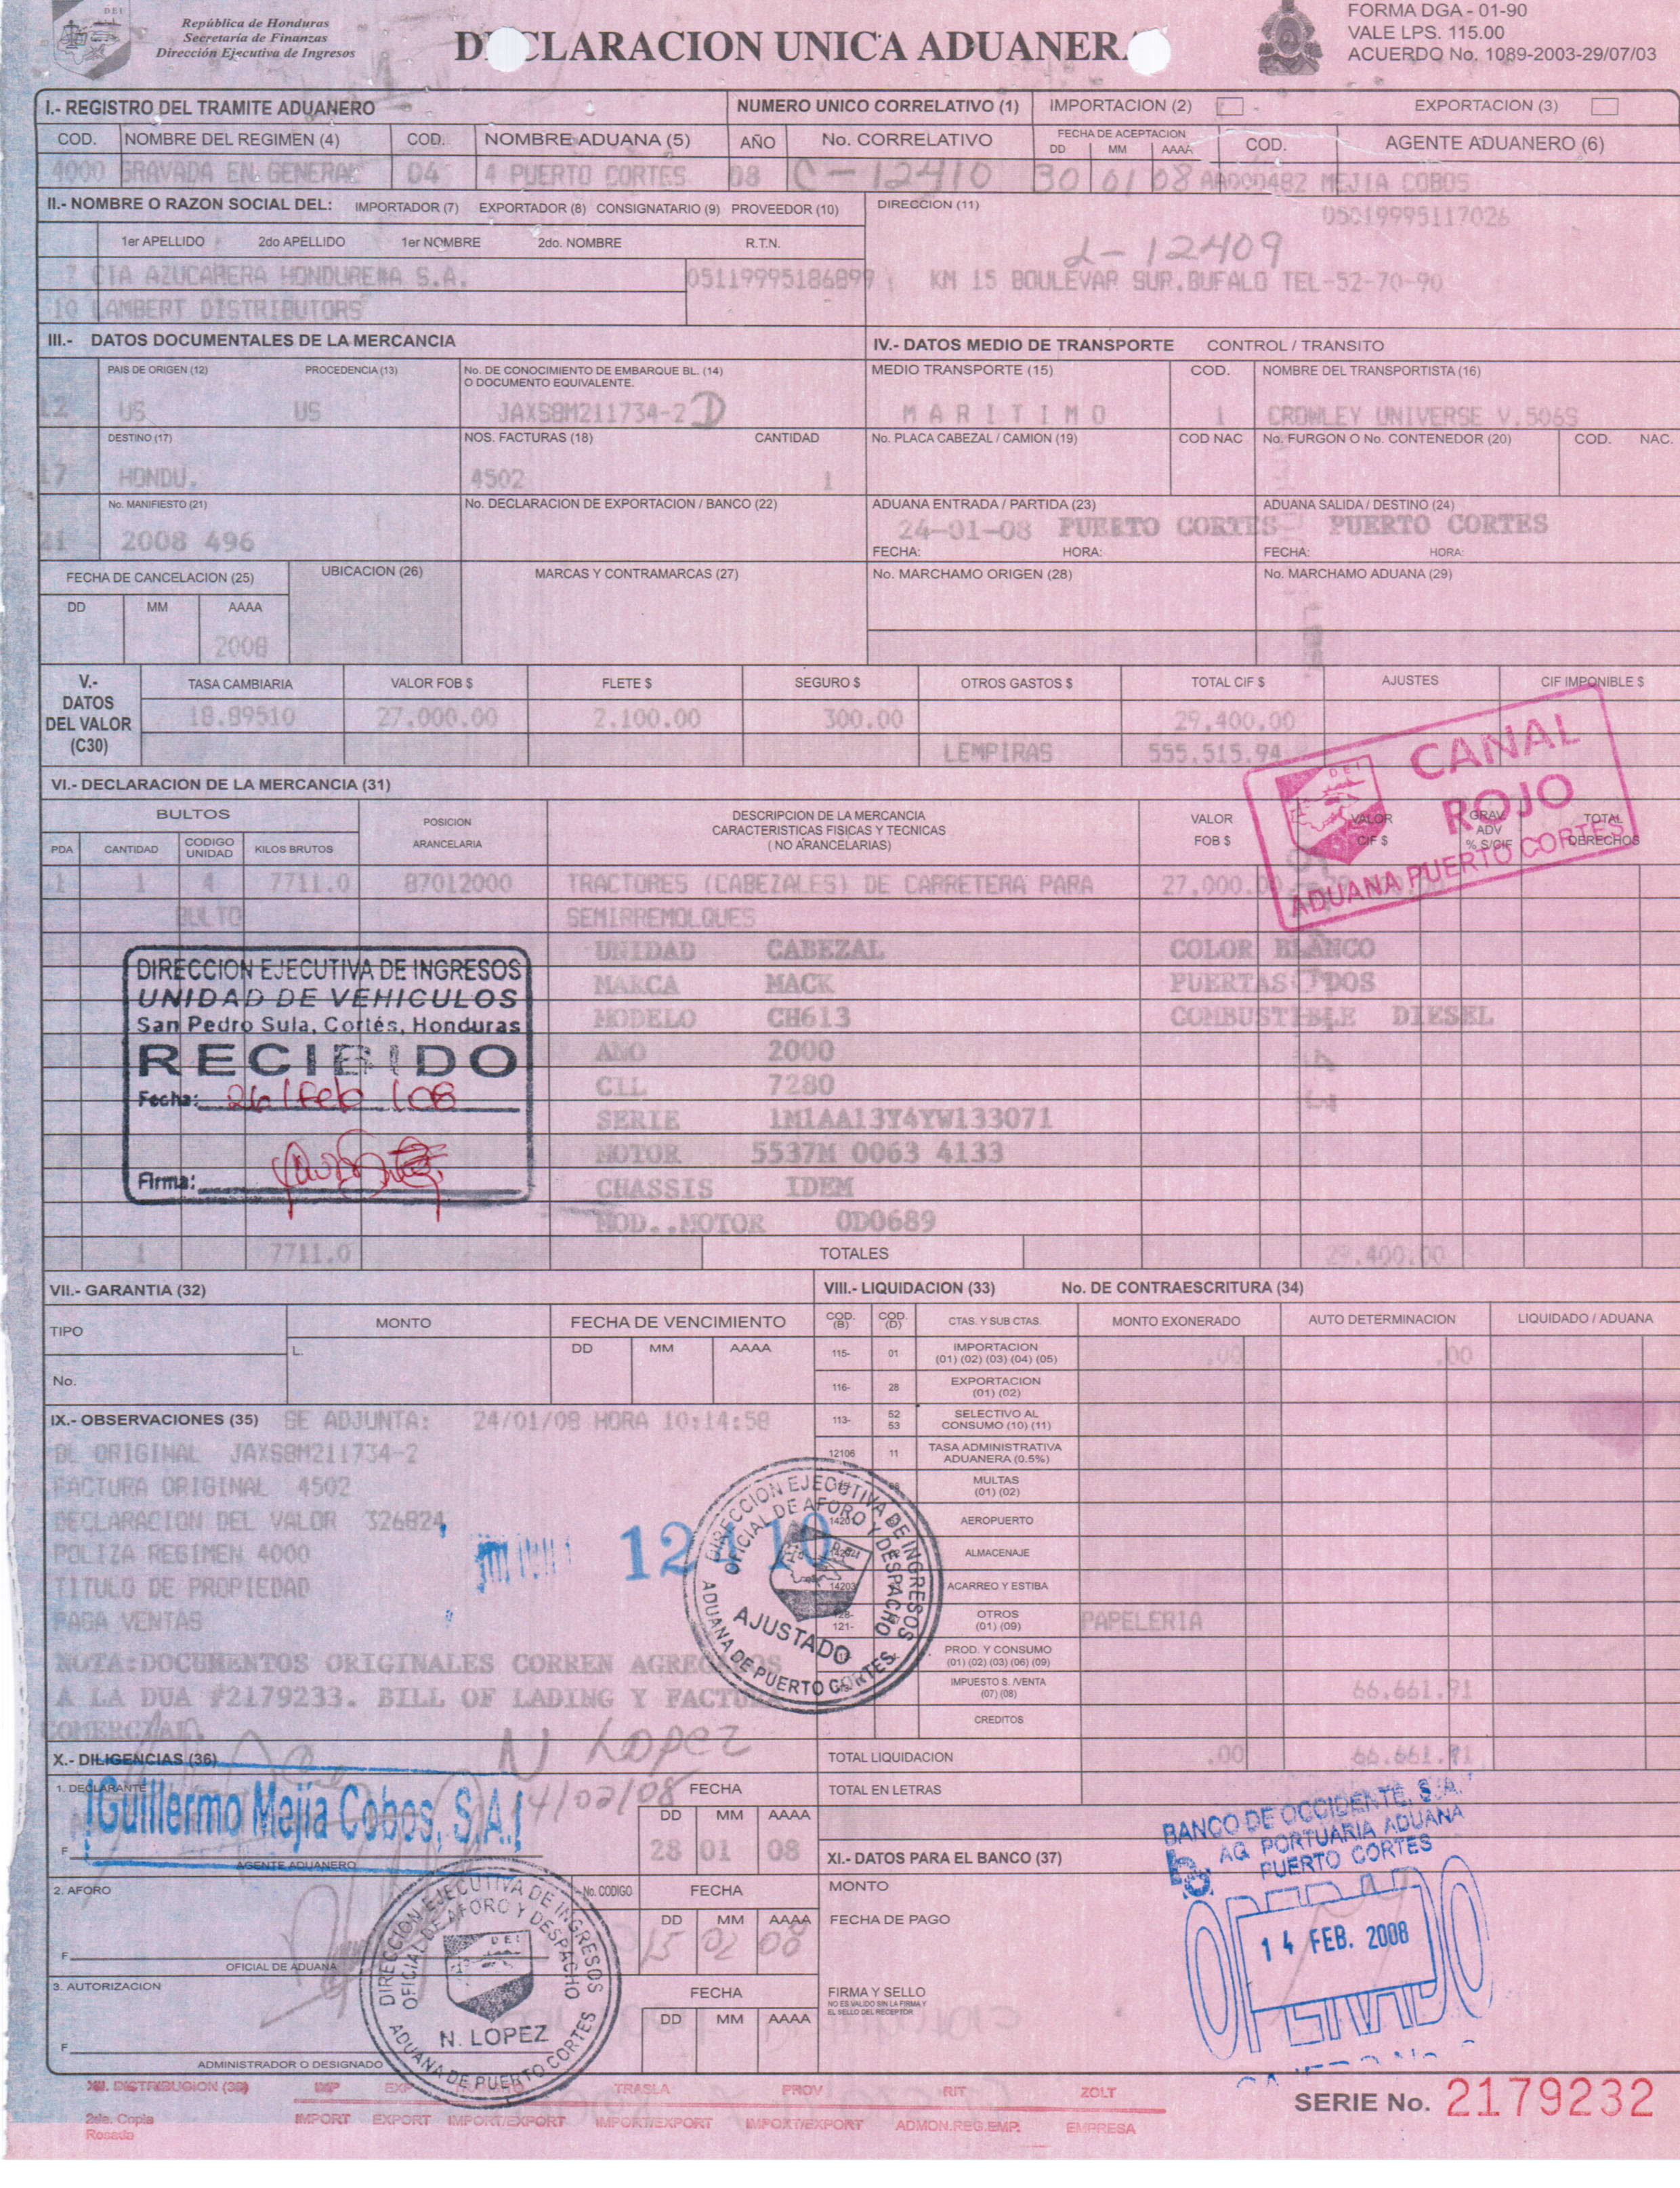 DEI
República de Honduras
Secretaría de Finanzas
Dirección Ejecutiva de Ingresos
DECLARACION UNICA ADUANERA
FORMA DGA - 01-90
VALE LPS. 115.00
ACUERDO No. 1089-2003-29/07/03
I.- REGISTRO DEL TRAMITE ADUANERO NUMERO UNICO CORRELATIVO (1) IMPORTACION (2) EXPORTACION (3)
COD. NOMBRE DEL REGIMEN (4) COD. NOMBRE ADUANA (5) AÑO No. CORRELATIVO FECHA DE ACEPTACION DD MM AAAA COD. AGENTE ADUANERO (6)
4000 GRAVADA EN GENERAL 04 4 PUERTO CORTES 08 C-12410 30 01 08 AA000482 MEJIA COBOS
II.- NOMBRE O RAZON SOCIAL DEL: IMPORTADOR (7) EXPORTADOR (8) CONSIGNATARIO (9) PROVEEDOR (10) DIRECCION (11) 05019995117026
1er APELLIDO 2do APELLIDO 1er NOMBRE 2do. NOMBRE R.T.N.
L-12409
7 CIA AZUCARERA HONDUREÑA S.A. 05119995186899 KM 15 BOULEVAR SUR.BUFALO TEL-52-70-90
10 LAMBERT DISTRIBUTORS
III.- DATOS DOCUMENTALES DE LA MERCANCIA IV.- DATOS MEDIO DE TRANSPORTE CONTROL / TRANSITO
PAIS DE ORIGEN (12) PROCEDENCIA (13) No. DE CONOCIMIENTO DE EMBARQUE BL. (14) O DOCUMENTO EQUIVALENTE. MEDIO TRANSPORTE (15) COD. NOMBRE DEL TRANSPORTISTA (16)
12 US US JAXS8M211734-2 D MARITIMO 1 CROWLEY UNIVERSE V.506S
DESTINO (17) NOS. FACTURAS (18) CANTIDAD No. PLACA CABEZAL / CAMION (19) COD NAC No. FURGON O No. CONTENEDOR (20) COD. NAC.
17 HONDU. 4502 1
No. MANIFIESTO (21) No. DECLARACION DE EXPORTACION / BANCO (22) ADUANA ENTRADA / PARTIDA (23) ADUANA SALIDA / DESTINO (24)
21 2008 496 24-01-08 PUERTO CORTES PUERTO CORTES
FECHA: HORA: FECHA: HORA:
FECHA DE CANCELACION (25) UBICACION (26) MARCAS Y CONTRAMARCAS (27) No. MARCHAMO ORIGEN (28) No. MARCHAMO ADUANA (29)
DD MM AAAA
2008
V.- DATOS DEL VALOR (C30)
TASA CAMBIARIA VALOR FOB $ FLETE $ SEGURO $ OTROS GASTOS $ TOTAL CIF $ AJUSTES CIF IMPONIBLE $
18.89510 27.000.00 2.100.00 300.00 29.400.00
LEMPIRAS 555.515.94
CANAL
ROJO
DEI
ADUANA PUERTO CORTES
VI.- DECLARACION DE LA MERCANCIA (31)
BULTOS POSICION ARANCELARIA DESCRIPCION DE LA MERCANCIA CARACTERISTICAS FISICAS Y TECNICAS ( NO ARANCELARIAS) VALOR FOB $ VALOR CIF $ GRAV. ADV % S/CIF TOTAL DERECHOS
PDA CANTIDAD CODIGO UNIDAD KILOS BRUTOS
1 1 4 7711.0 87012000 TRACTORES (CABEZALES) DE CARRETERA PARA 27.000.00
BULTO SEMIRREMOLQUES
UNIDAD CABEZAL COLOR BLANCO
MARCA MACK PUERTAS DOS
MODELO CH613 COMBUSTIBLE DIESEL
AÑO 2000
CIL 7280
SERIE 1M1AA13Y4YW133071
MOTOR 5537M 0063 4133
CHASSIS IDEM
MOD..MOTOR 0D0689
DIRECCION EJECUTIVA DE INGRESOS
UNIDAD DE VEHICULOS
San Pedro Sula, Cortés, Honduras
RECIBIDO
Fecha: 26/Feb/08
Firma:
1 7711.0 TOTALES 29.400.00
VII.- GARANTIA (32) VIII.- LIQUIDACION (33) No. DE CONTRAESCRITURA (34)
TIPO MONTO FECHA DE VENCIMIENTO COD. (B) COD. (D) CTAS. Y SUB CTAS. MONTO EXONERADO AUTO DETERMINACION LIQUIDADO / ADUANA
L. DD MM AAAA
No.
115- 01 IMPORTACION (01) (02) (03) (04) (05) .00 .00
116- 28 EXPORTACION (01) (02)
113- 52 53 SELECTIVO AL CONSUMO (10) (11)
12106 11 TASA ADMINISTRATIVA ADUANERA (0.5%)
MULTAS (01) (02)
AEROPUERTO
ALMACENAJE
14203 ACARREO Y ESTIBA
121- OTROS (01) (09) PAPELERIA
PROD. Y CONSUMO (01) (02) (03) (06) (09)
IMPUESTO S. /VENTA (07) (08) 66.661.91
CREDITOS
TOTAL LIQUIDACION .00 66.661.91
TOTAL EN LETRAS
IX.- OBSERVACIONES (35) SE ADJUNTA: 24/01/08 HORA 10:14:58
BL ORIGINAL JAXS8M211734-2
FACTURA ORIGINAL 4502
DECLARACION DEL VALOR 326824
POLIZA REGIMEN 4000
TITULO DE PROPIEDAD
PAGA VENTAS
NOTA:DOCUMENTOS ORIGINALES CORREN AGREGADOS
A LA DUA #2179233. BILL OF LADING Y FACTURA
COMERCIAL.
12410
DIRECCION EJECUTIVA DE INGRESOS
OFICIAL DE AFORO Y DESPACHO
AJUSTADO
ADUANA DE PUERTO CORTES
N Lopez
14/02/08
X.- DILIGENCIAS (36)
1. DECLARANTE FECHA
Guillermo Mejía Cobos, S.A.
DD MM AAAA
28 01 08
F
AGENTE ADUANERO
2. AFORO No. CODIGO FECHA
DD MM AAAA
15 02 08
F
OFICIAL DE ADUANA
3. AUTORIZACION FECHA
DD MM AAAA
F
ADMINISTRADOR O DESIGNADO
DIRECCION EJECUTIVA DE INGRESOS
OFICIAL DE AFORO Y DESPACHO
DEI
N. LOPEZ
ADUANA DE PUERTO CORTES
XI.- DATOS PARA EL BANCO (37)
MONTO
FECHA DE PAGO
FIRMA Y SELLO
NO ES VALIDO SIN LA FIRMA Y
EL SELLO DEL RECEPTOR
BANCO DE OCCIDENTE, S.A.
AG. PORTUARIA ADUANA
PUERTO CORTES
14 FEB. 2008
OPERADO
XII. DISTRIBUCION (38) IMP EXP TRASLA PROV RIT ZOLT
2da. Copia IMPORT EXPORT IMPORT/EXPORT IMPORT/EXPORT IMPORT/EXPORT ADMON.REG.EMP. EMPRESA
Rosada
SERIE No. 2179232